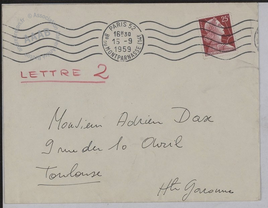 PARIS 52
16H30
15-9
1959
R. DU MONTPARNASSE (6E)
25
LETTRE 2
Monsieur Adrien Dax
9 rue du 10 Avril
Toulouse
Hte Garonne